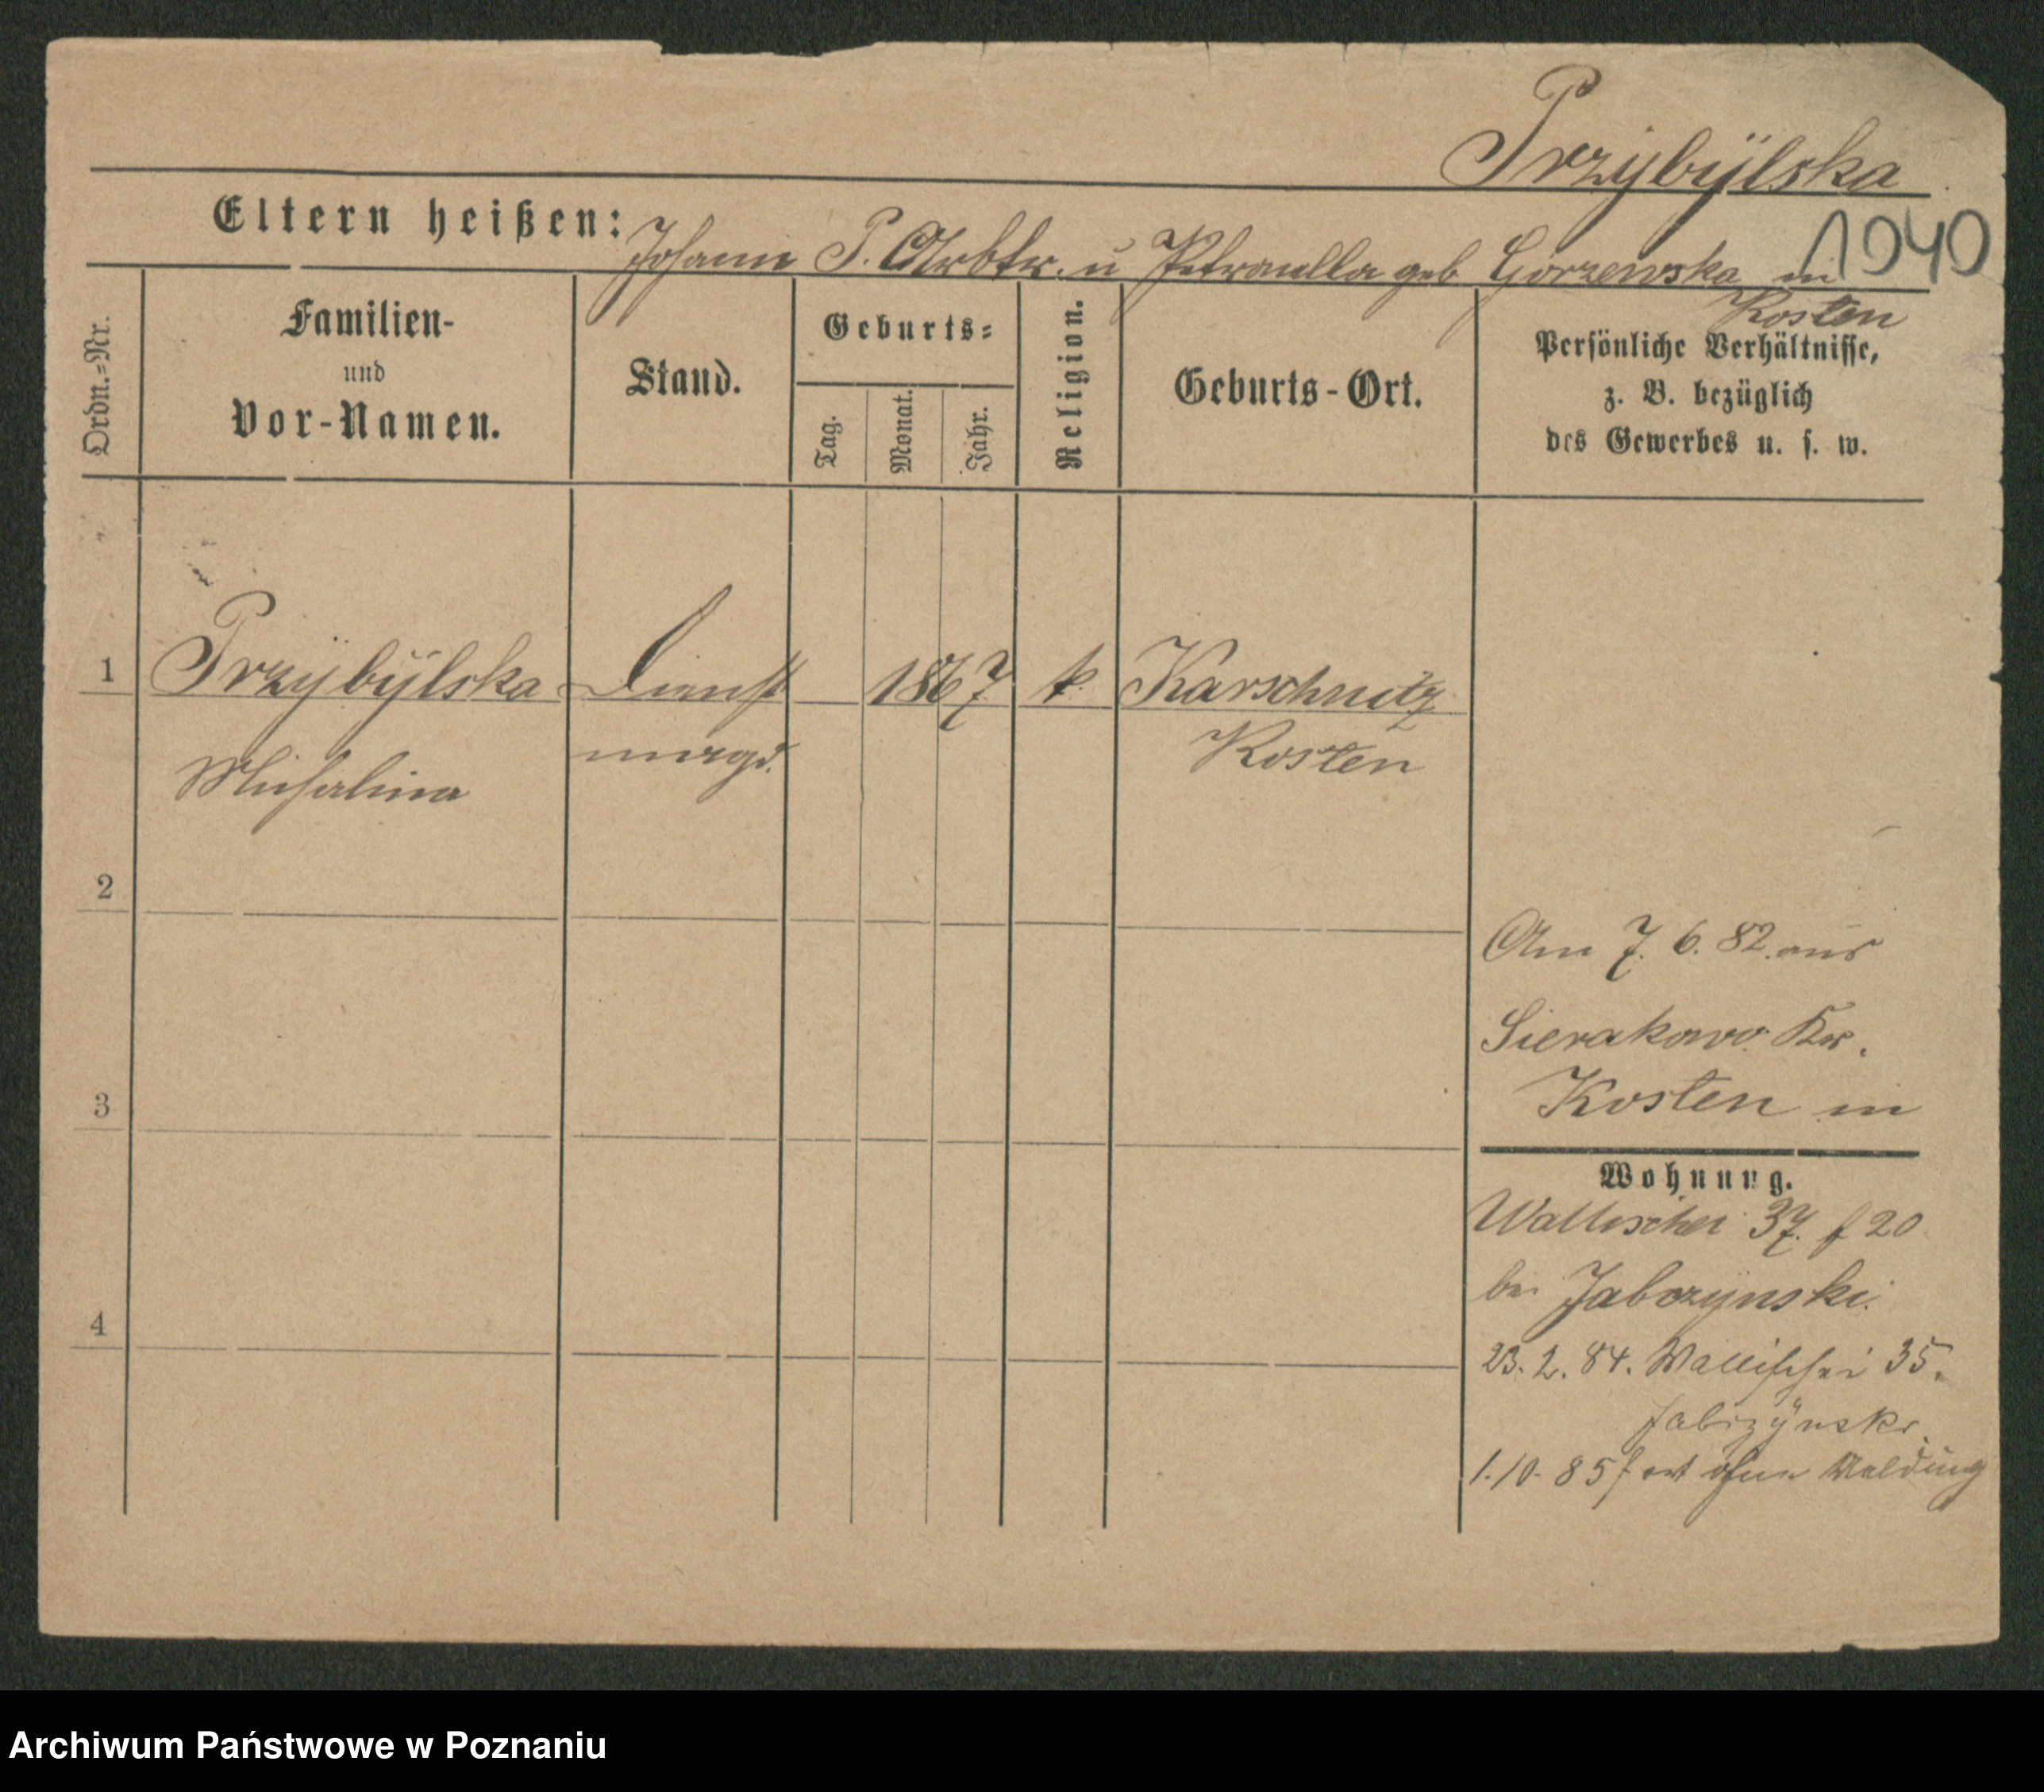 Przybÿlska
1040
Eltern heißen: Johann P. Arbtr. u Petronella geb Gorzewska in
Kosten
Ordn.-Nr.
Familien-
und
Vor-Namen.
Stand.
Geburts-
Tag.
Monat.
Jahr.
Religion.
Geburts-Ort.
Persönliche Verhältnisse,
z. B. bezüglich
des Gewerbes u. s. w.
1 Przybÿlska Dienst 1867 k. Karschnitz
Michalina magd. Kosten
2
Am 7. 6. 82. aus
Sierakowo Krs.
Kosten in
3
Wohnung.
Wallischei 37. f 20
bei Jabczynski.
4
23. 2. 84. Wallischei 35.
Jabczÿnski.
1. 10. 85 fort ohne Meldung
Archiwum Państwowe w Poznaniu